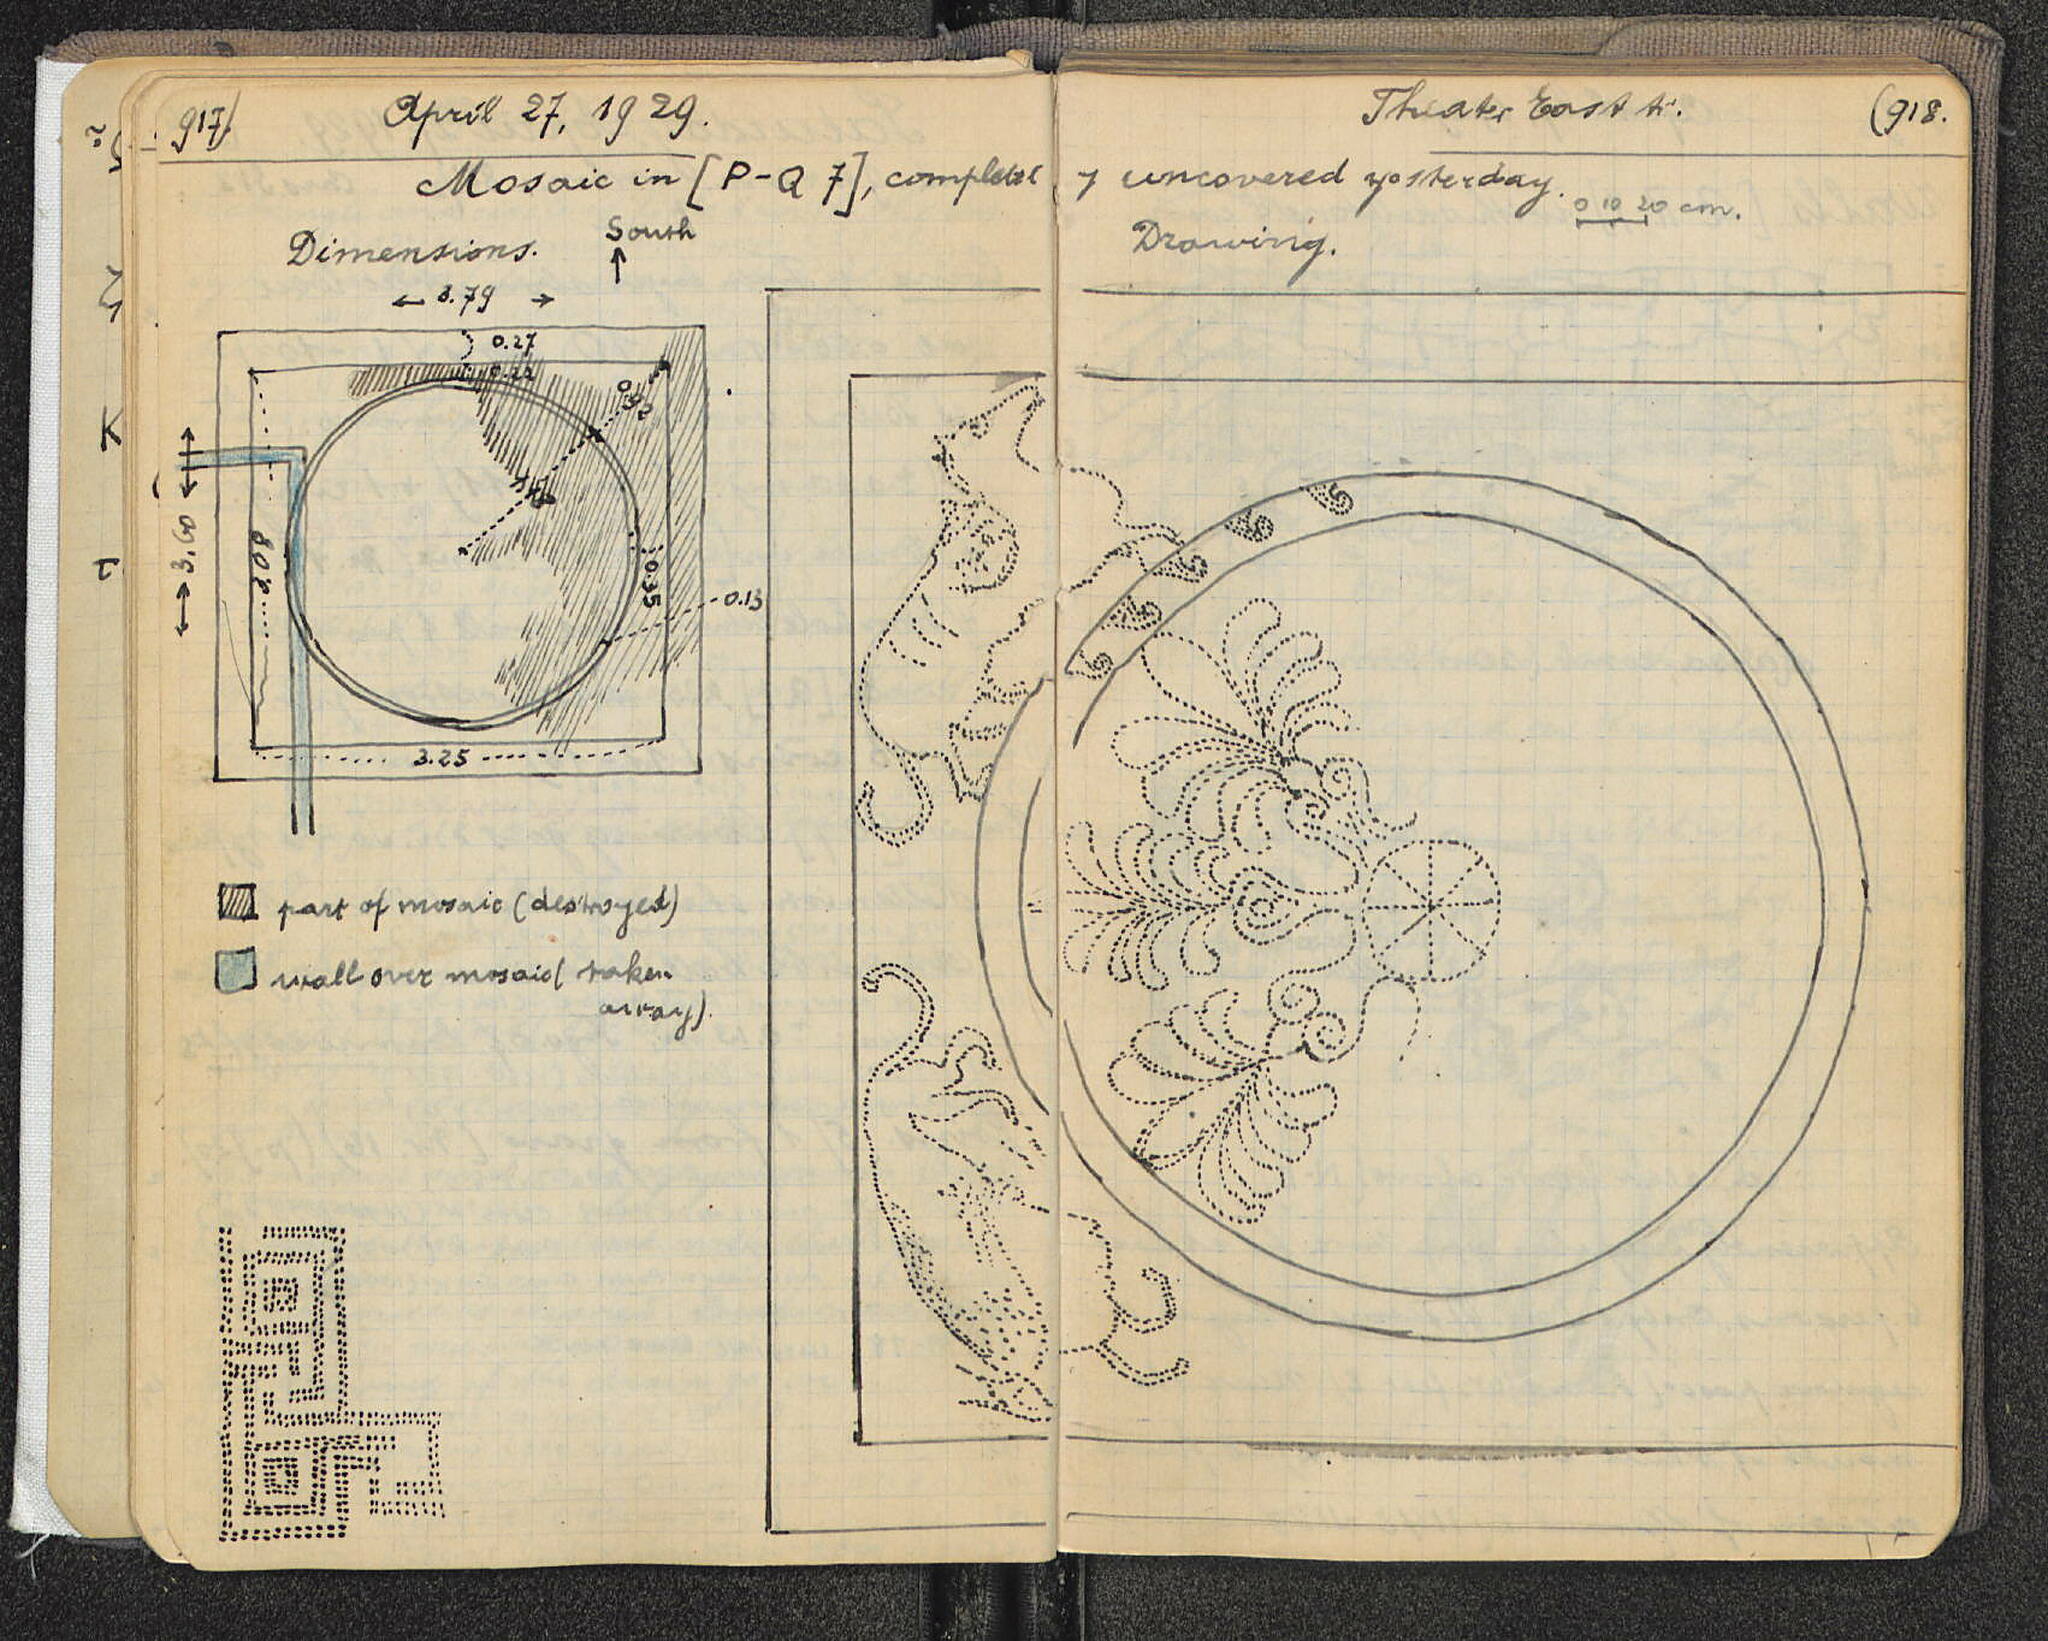 917)
April 27, 1929.
Mosaic in [P-Q 7], completely uncovered yesterday.
Dimensions.
South
3.79
0.27
0.22
3.60
3.08
0.35
0.13
3.25
part of mosaic (destroyed)
wall over mosaic (taken
away).
Theater East tr.
(918.
0 10 20 cm.
Drawing.